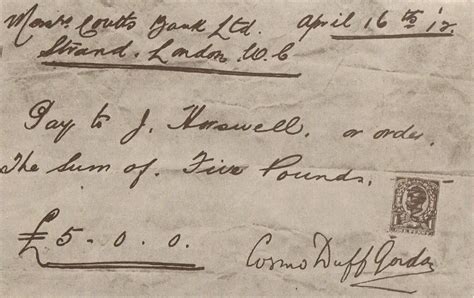 Messrs Coutts Bank Ltd. April 16th '12.
Strand. London. W. C
Pay to J. Horswell. or order.
The Sum of. Five Pounds.
£5 - 0. 0.
Cosmo Duff Gordon